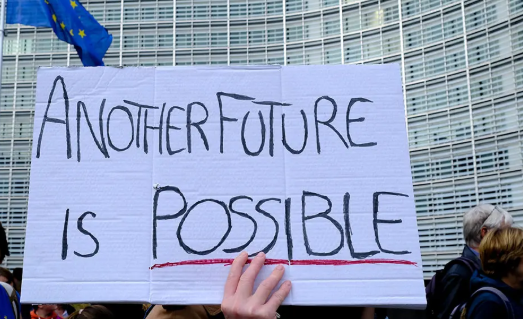 ANOTHER FUTURE
IS POSSIBLE